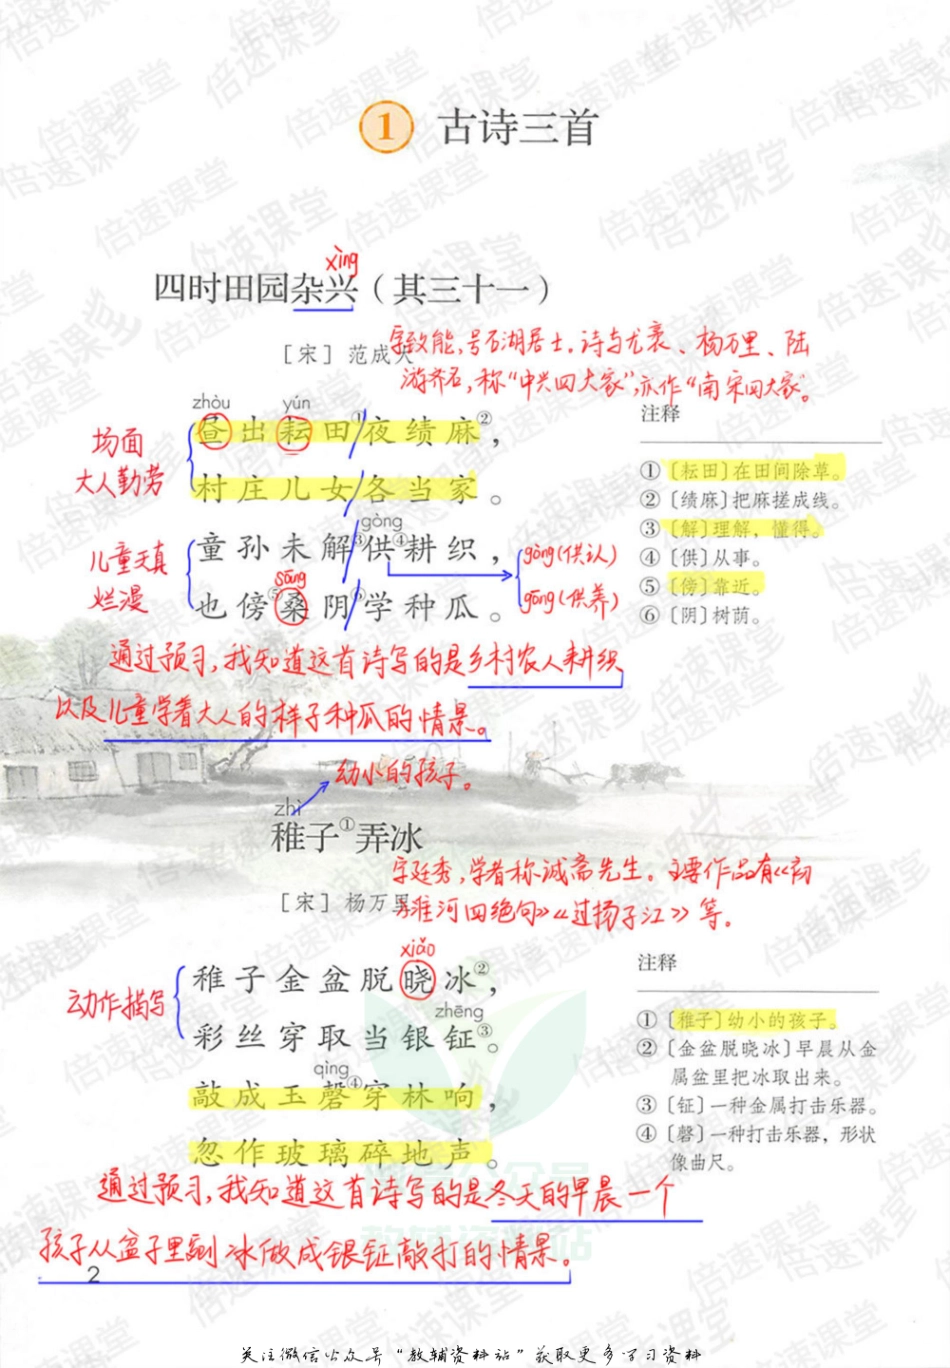 1 古诗三首
xìng
四时田园杂兴（其三十一）
［宋］ 范成大
字致能,号石湖居士。诗与尤袤、杨万里、陆
游齐名,称“中兴四大家”,亦作“南宋四大家”。
zhòu yún
昼出耘田①/夜绩麻②，
村庄儿女/各当家。
gòng
童孙未解③/供④耕织，
sāng
也傍⑤桑阴⑥/学种瓜。
场面
大人勤劳
儿童天真
烂漫
gòng(供认)
gōng(供养)
注释
①〔耘田〕在田间除草。
②〔绩麻〕把麻搓成线。
③〔解〕理解，懂得。
④〔供〕从事。
⑤〔傍〕靠近。
⑥〔阴〕树荫。
通过预习,我知道这首诗写的是乡村农人耕织
以及儿童学着大人的样子种瓜的情景。
幼小的孩子。
zhì
稚子①弄冰
［宋］ 杨万里
字廷秀,学者称诚斋先生。主要作品有《初
淮河四绝句》《过扬子江》等。
xiǎo
稚子金盆脱晓冰②，
zhēng
彩丝穿取当银钲③。
qìng
敲成玉磬④穿林响，
忽作玻璃碎地声。
动作描写
注释
①〔稚子〕幼小的孩子。
②〔金盆脱晓冰〕早晨从金
属盆里把冰取出来。
③〔钲〕一种金属打击乐器。
④〔磬〕一种打击乐器，形状
像曲尺。
通过预习,我知道这首诗写的是冬天的早晨一个
孩子从盆子里剜冰做成银钲敲打的情景。
2
关注微信公众号“教辅资料站”获取更多学习资料
倍速课堂